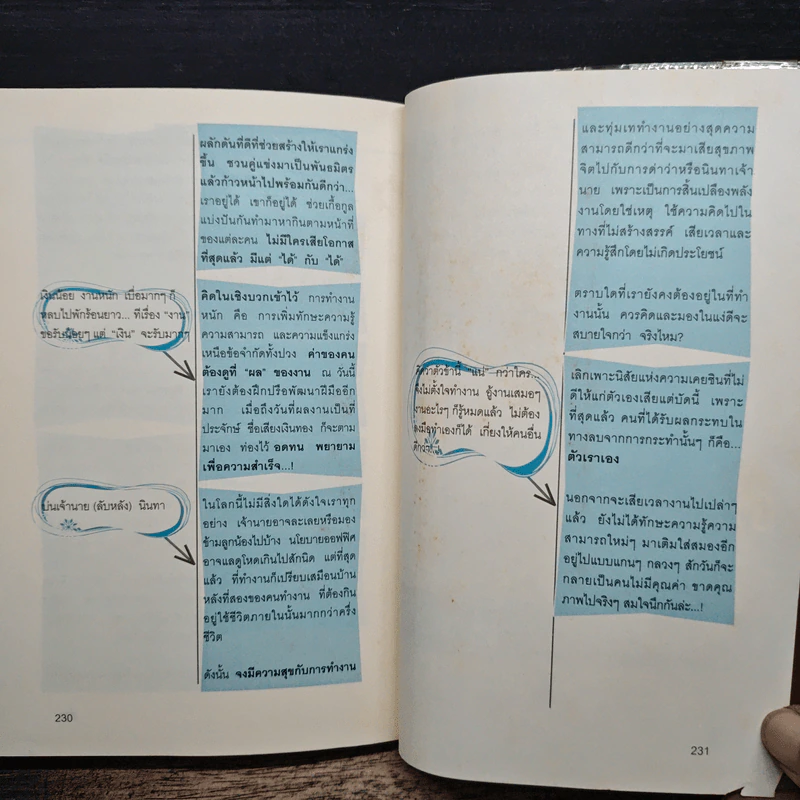 ผลักดันที่ดีที่ช่วยสร้างให้เราแกร่ง
ขึ้น ชวนคู่แข่งมาเป็นพันธมิตร
แล้วก้าวหน้าไปพร้อมกันดีกว่า...
เราอยู่ได้ เขาก็อยู่ได้ ช่วยเกื้อกูล
แบ่งปันกันทำมาหากินตามหน้าที่
ของแต่ละคน ไม่มีใครเสียโอกาส
ที่สุดแล้ว มีแต่ "ได้" กับ "ได้"
เงินน้อย งานหนัก เบื่อมากๆ ก็
หลบไปพักร้อนยาว... ที่เรื่อง "งาน"
ขอรับน้อยๆ แต่ "เงิน" จะรับมากๆ
คิดในเชิงบวกเข้าไว้ การทำงาน
หนัก คือ การเพิ่มทักษะความรู้
ความสามารถ และความแข็งแกร่ง
เหนือข้อจำกัดทั้งปวง ค่าของคน
ต้องดูที่ "ผล" ของงาน ณ วันนี้
เรายังต้องฝึกปรือพัฒนาฝีมืออีก
มาก เมื่อถึงวันที่ผลงานเป็นที่
ประจักษ์ ชื่อเสียงเงินทอง ก็จะตาม
มาเอง ท่องไว้ อดทน พยายาม
เพื่อความสำเร็จ...!
บ่นเจ้านาย (ลับหลัง) นินทา
ในโลกนี้ไม่มีสิ่งใดได้ดังใจเราทุก
อย่าง เจ้านายอาจละเลยหรือมอง
ข้ามลูกน้องไปบ้าง นโยบายออฟฟิศ
อาจแลดูโหดเกินไปสักนิด แต่ที่สุด
แล้ว ที่ทำงานก็เปรียบเสมือนบ้าน
หลังที่สองของคนทำงาน ที่ต้องกิน
อยู่ใช้ชีวิตภายในนั้นมากกว่าครึ่ง
ชีวิต
ดังนั้น จงมีความสุขกับการทำงาน
230
และทุ่มเททำงานอย่างสุดความ
สามารถดีกว่าที่จะมาเสียสุขภาพ
จิตไปกับการด่าว่าหรือนินทาเจ้า
นาย เพราะเป็นการสิ้นเปลืองพลัง
งานโดยใช่เหตุ ใช้ความคิดไปใน
ทางที่ไม่สร้างสรรค์ เสียเวลาและ
ความรู้สึกโดยไม่เกิดประโยชน์
ตราบใดที่เรายังคงต้องอยู่ในที่ทำ
งานนั้น ควรคิดและมองในแง่ดีจะ
สบายใจกว่า จริงไหม?
คิดว่าตัวข้านี้ "แน่" กว่าใคร...
จึงไม่ตั้งใจทำงาน อู้งานเสมอๆ
งานอะไรๆ ก็รู้หมดแล้ว ไม่ต้อง
ลงมือทำเองก็ได้ เกี่ยงให้คนอื่น
ดีกว่า...
เลิกเพาะนิสัยแห่งความเคยชินที่ไม่
ดีให้แก่ตัวเองเสียแต่บัดนี้ เพราะ
ที่สุดแล้ว คนที่ได้รับผลกระทบใน
ทางลบจากการกระทำนั้นๆ ก็คือ...
ตัวเราเอง
นอกจากจะเสียเวลางานไปเปล่าๆ
แล้ว ยังไม่ได้ทักษะความรู้ความ
สามารถใหม่ๆ มาเติมใส่สมองอีก
อยู่ไปแบบแกนๆ กลวงๆ สักวันก็จะ
กลายเป็นคนไม่มีคุณค่า ขาดคุณ
ภาพไปจริงๆ สมใจนึกกันล่ะ...!
231